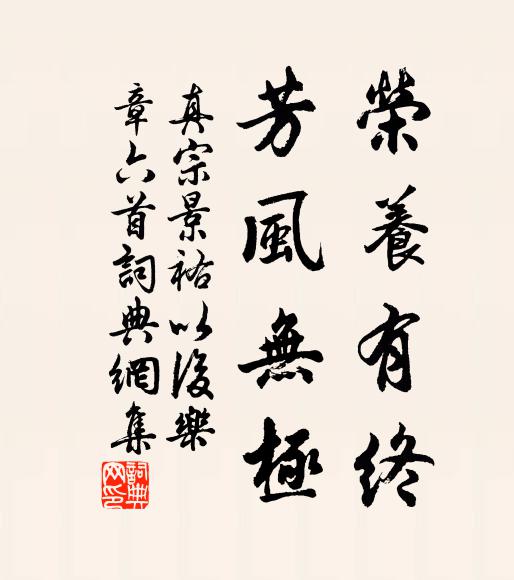 榮養有終
芳風無極
真宗景祐以後樂
章六首詞典網集
詞典网印